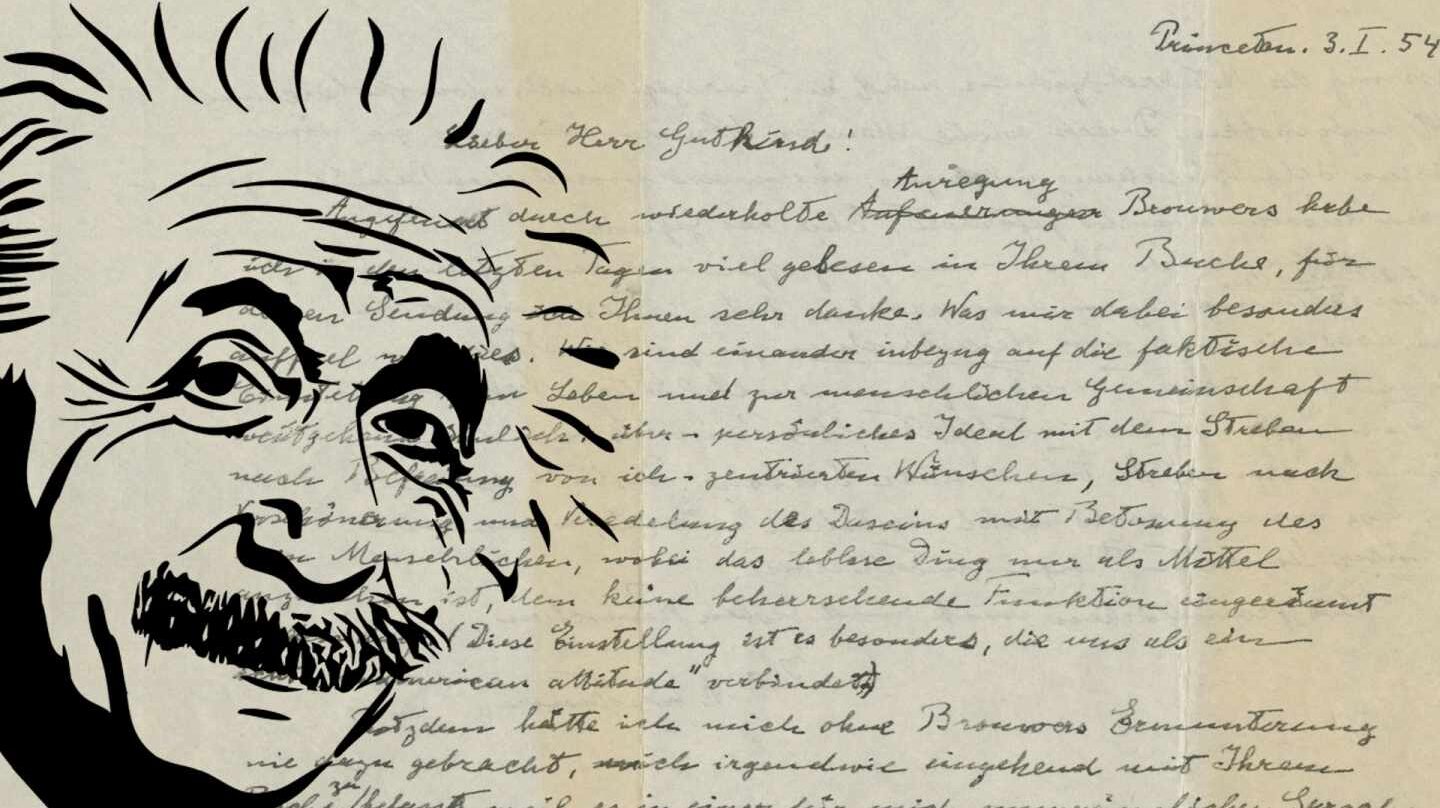 Princeton. 3. I. 54
Lieber Herr Gutkind!
Anregung
Angefeuert durch wiederholte Aufmunterungen Brouwers habe
ich in den letzten Tagen viel gelesen in Ihrem Buche, für
deren Sendung ich Ihnen sehr danke. Was mir dabei besonders
auffiel war dies. Wir sind einander inbezug auf die faktische
Einstellung zum Leben und zur menschlichen Gemeinschaft
weitgehend ähnlich: über-persönliches Ideal mit dem Streben
nach Befreiung von ich-zentrierten Wünschen, Streben nach
Verschönerung und Veredelung des Daseins mit Betonung des
rein Menschlichen, wobei das leblose Ding nur als Mittel
anzusehen ist, dem keine beherrschende Funktion eingeräumt
(Diese Einstellung ist es besonders, die uns als ein
american attitude" verbindet.)
Trotzdem hätte ich mich ohne Brouwers Ermunterung
nie dazu gebracht, mich irgendwie eingehend mit Ihrem